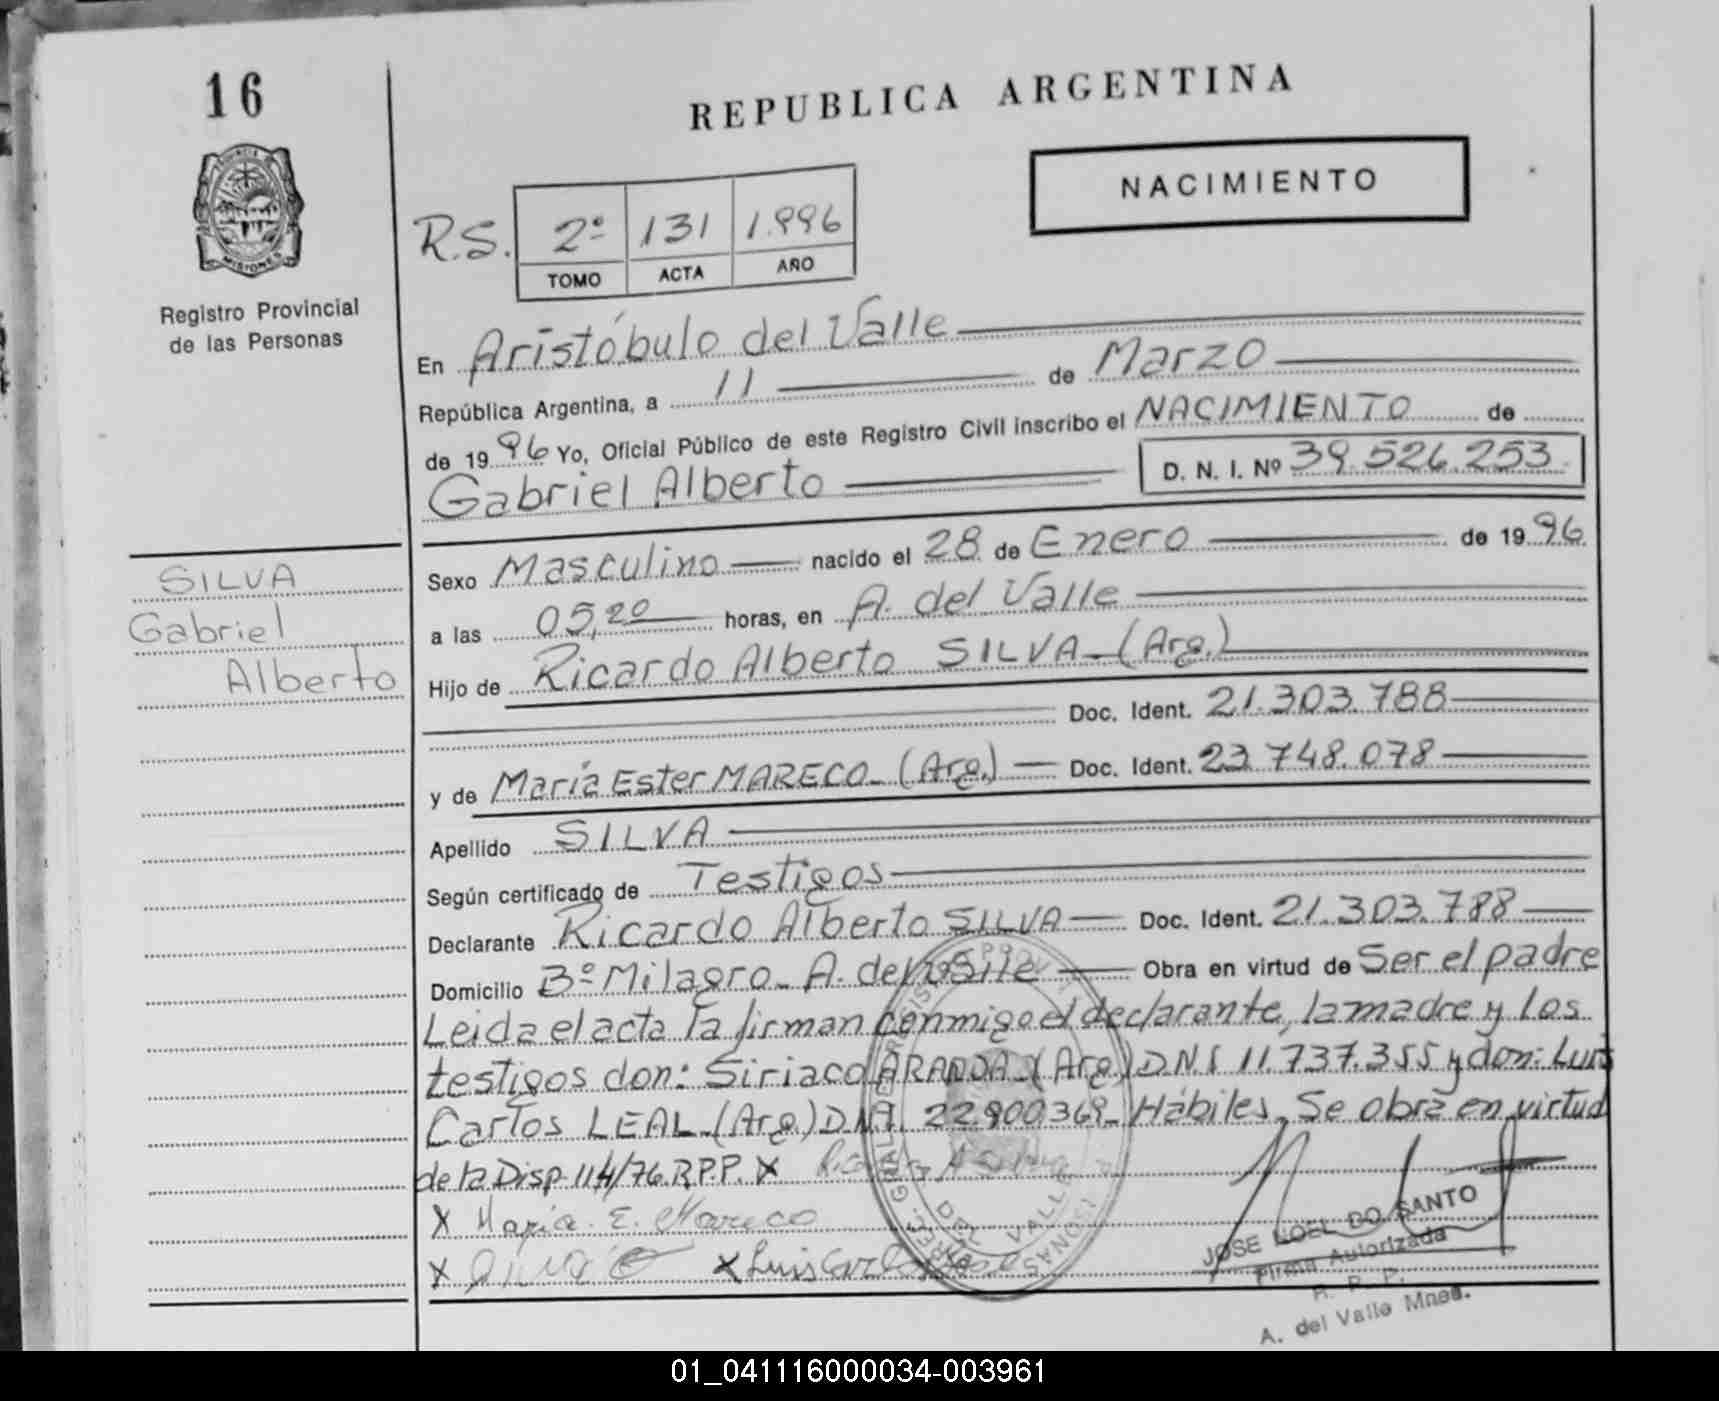 16
REPUBLICA ARGENTINA
PROVINCIA DE
MISIONES
Registro Provincial
de las Personas
NACIMIENTO
R.S. 2º 131 1.996
TOMO ACTA AÑO
En Aristóbulo del Valle
República Argentina, a 11 de Marzo
de 1996 Yo, Oficial Público de este Registro Civil inscribo el NACIMIENTO de
Gabriel Alberto D. N. I. Nº 39.526.253
SILVA
Gabriel
Alberto
Sexo Masculino nacido el 28 de Enero de 1996
a las 05,20 horas, en A. del Valle
Hijo de Ricardo Alberto SILVA-(Arg.)
Doc. Ident. 21.303.788
y de María Ester MARECO-(Arg.) Doc. Ident. 23.748.078
Apellido SILVA
Según certificado de Testigos
Declarante Ricardo Alberto SILVA Doc. Ident. 21.303.788
Domicilio Bº Milagro- A. del Valle Obra en virtud de Ser el padre
Leida el acta la firman conmigo el declarante, la madre y los
testigos don: Siriaco ARANDA-(Arg) DNI 11.737.355 y don: Luis
Carlos LEAL-(Arg.) DNI 22.900369- Hábiles, Se obra en virtud
de la Disp. 114/76 R.P.P. X
X Maria. E. Mareco
X X Luis Carlos
JOSE NOEL DO SANTO
Firma Autorizada
R. P. P.
A. del Valle Mnes.
01_041116000034-003961